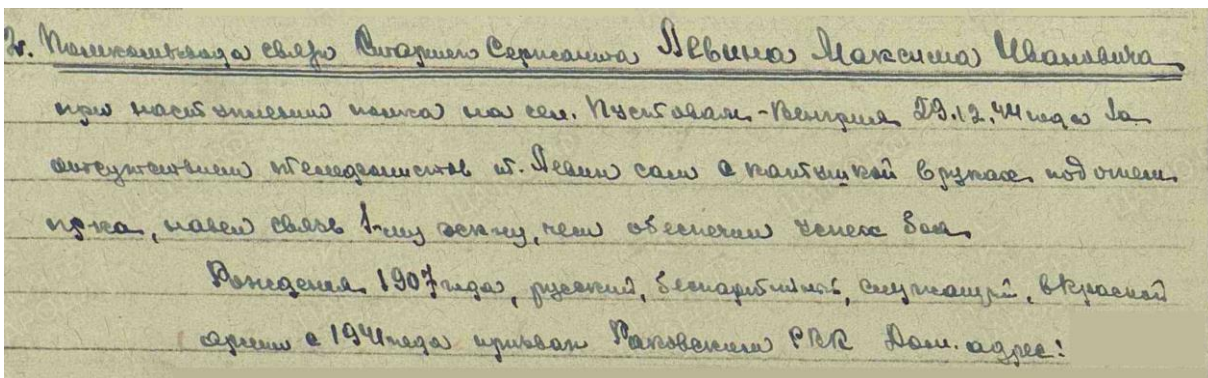 2. Помкомвзвода связи Старшего Сержанта Левина Максима Ивановича
при наступлении полка на сел. Пустовам-Венгрия 29.12.44 года за
отсутствием телефонистов ст. Левин сам с катушкой в руках под огнем
пр-ка, навел связь 1-му эск-ну, чем обеспечил успех боя.
Рождения 1907 года, русский, беспартийный, служащий, в Красной
армии с 1941 года призван Раковским РВК Дом. адрес: